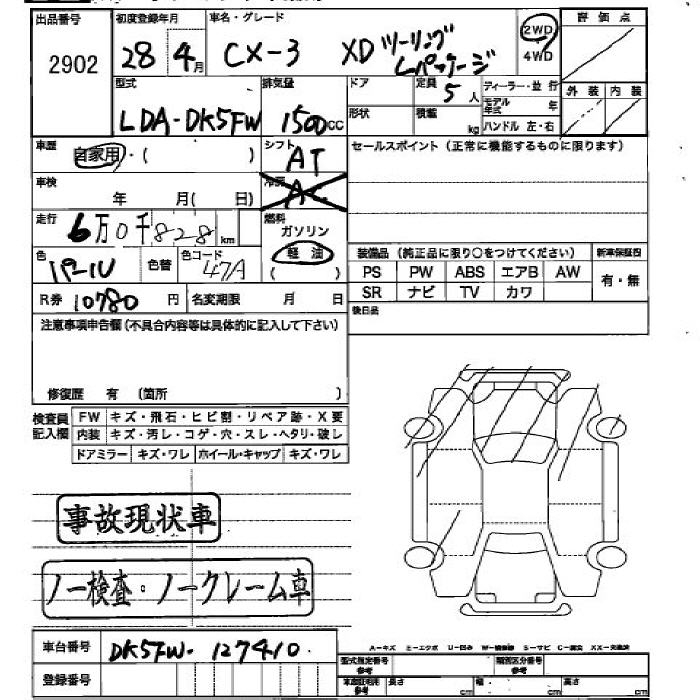 出品番号 初度登録年月 車名・グレード 評価点
2902 28年4月 CX-3 XDツーリング Lパッケージ 2WD 4WD
型式 排気量 ドア 定員 5人 ディーラー・並行 外装 内装
LDA-DK5FW 1500cc 形状 積載 kg モデル年式 年 ハンドル 左・右
車歴 自家用・( ) シフト AT セールスポイント(正常に機能するものに限ります)
車検 年 月( 日) 冷房 AC
走行 6万0千828km 燃料 ガソリン 軽油 ( )
色 パール 色替 色コード 47A
装備品(純正品に限り○をつけてください) 新車保証書
PS PW ABS エアB AW 有・無
SR ナビ TV カワ
R券 10780円 名変期限 月 日 後日品
注意事項申告欄(不具合内容等は具体的に記入して下さい)
修復歴 有 (箇所 )
検査員記入欄 FW キズ・飛石・ヒビ割・リペア跡・X要
内装 キズ・汚レ・コゲ・穴・スレ・ヘタリ・破レ
ドアミラー キズ・ワレ ホイール・キャップ キズ・ワレ
事故現状車
ノー検査・ノークレーム車
車台番号 DK5FW-127410
A-キズ E-エクボ U-凹み S-サビ
登録番号 型式指定番号 参考 類別区分番号 参考
長さ cm 幅 cm 高さ cm